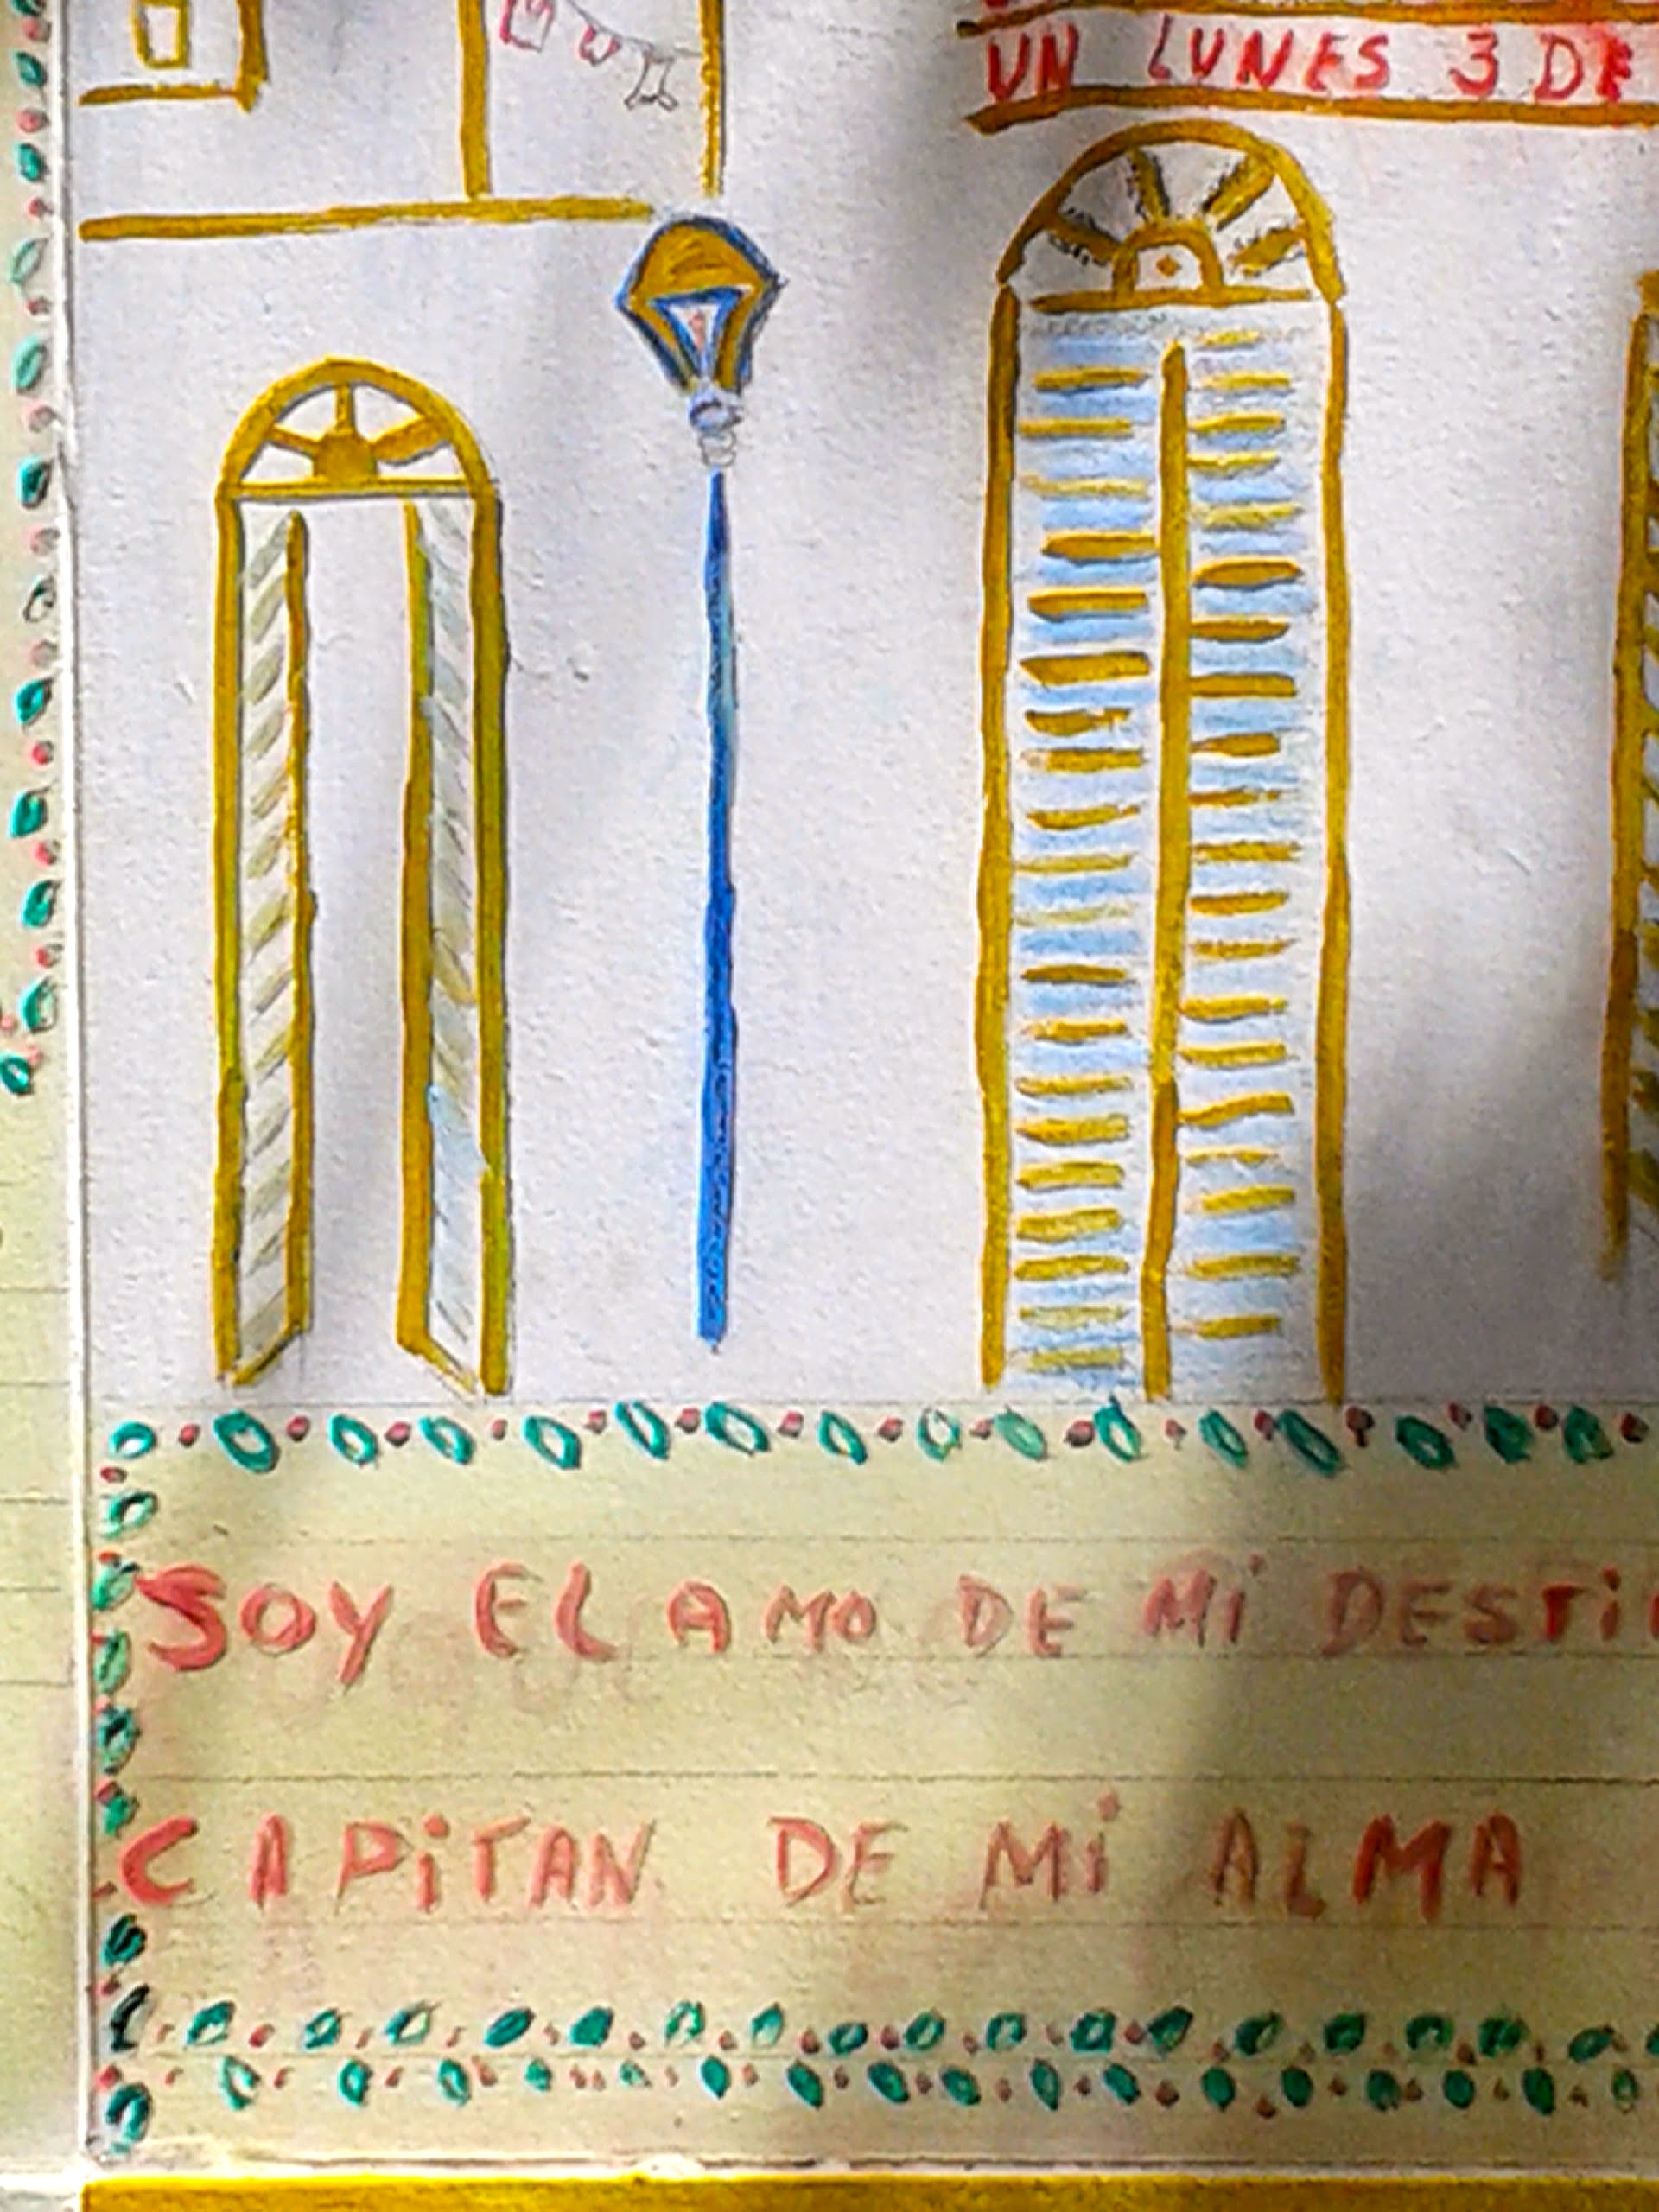 UN LUNES 3 DE
SOY EL AMO DE Mi DESTi
CAPiTAN DE Mi ALMA